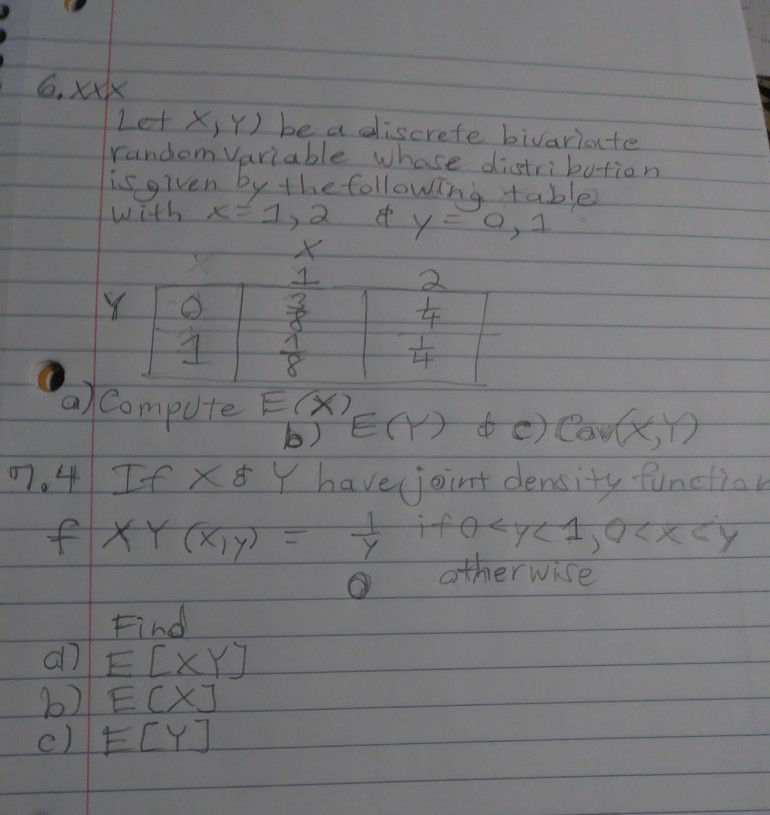 6.xxx
Let X, Y) be a discrete bivariate
random variable whose distribution
is given by the following table
with x = 1, 2 & y = 0, 1
X
1 2
Y 0 3/8 1/4
1 1/8 1/4
a) Compute E(X)
b) E(Y) & c) Cov(X,Y)
7.4 If X & Y have joint density function
f XY (x,y) = 1/y if 0<y<1, 0<x<y
0 otherwise
Find
a) E[XY]
b) E[X]
c) E[Y]